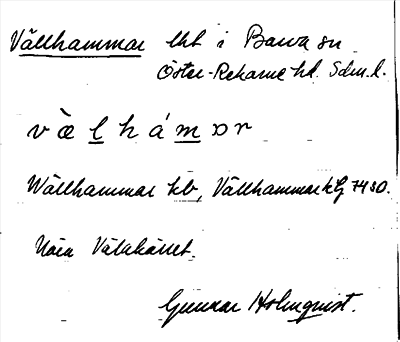 Vällhammar lht i Barva sn
Öster-Rekarne hd. Sdm. l.
v æ l h á m ɔ r
Wällhammar kb, Vällhammar hfj 7450.
Nära Väla
Gunnar Holmquist.